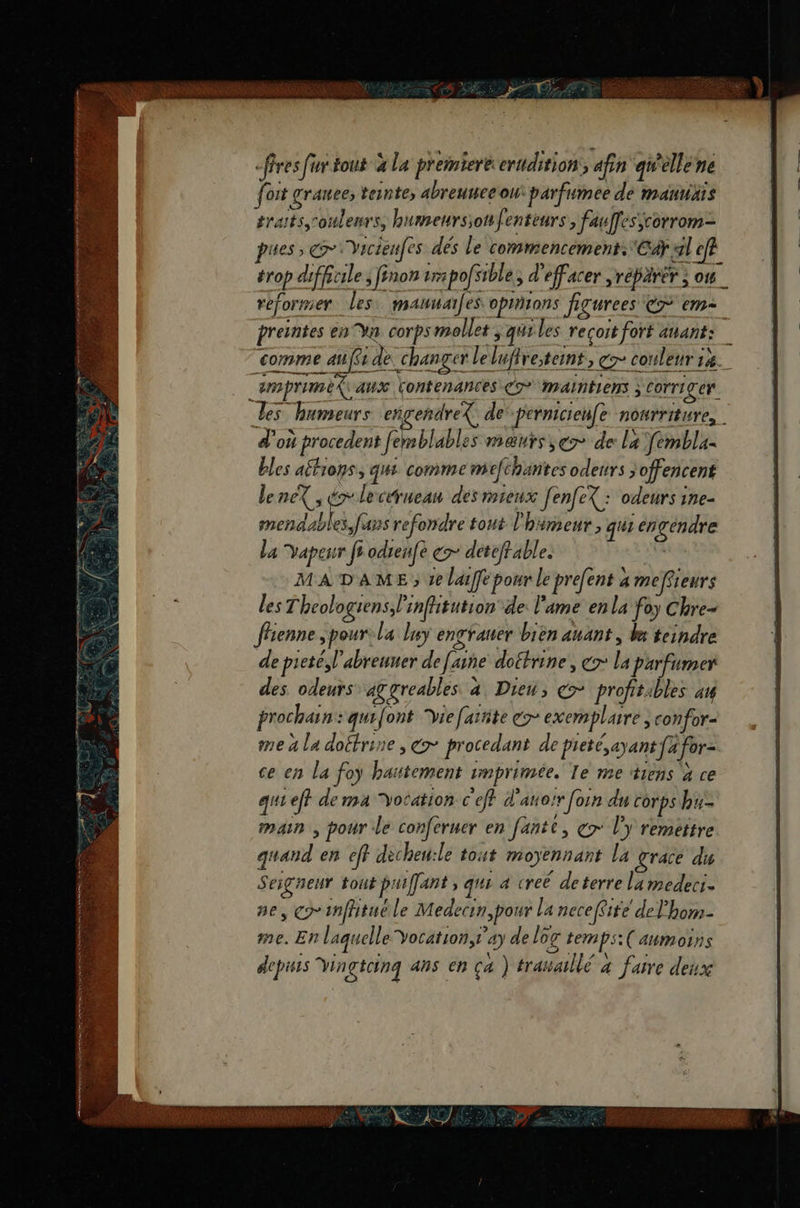 -stres sur tout à la premiere erudition, afin qu'elle ne
soit grauee, teinte, abreuuee ou parfumee de mauuais
traits, couleurs, humeurs, ou senteurs, fausses, corrom-
pues, & vicieuses dés le commencement. Car il est
trop difficile, sinon impossible, d'effacer, réparer, ou
reformer les mauuaises opinions figurees & em-
preintes en vn corps mollet, qui les reçoit fort auant:
comme aussi de changer le lustre, teint, & couleur ià
imprimez aux contenances & maintiens, corriger
les humeurs engendrez de pernicieuse nourriture,
d'où procedent semblables mœurs, & de là sembla-
bles actions, qui comme meschantes odeurs, offencent
le nez, & le cerueau des mieux sensez: odeurs ine-
mendables, sans refondre tout l'humeur, qui engendre
la vapeur si odieuse & detestable.
MADAME, ie laisse pour le present à messieurs
les Theologiens, l'institution de l'ame en la foy Chre-
stienne, pour la luy engrauer bien auant, la teindre
de pieté, l'abreuuer de saine doctrine, & la parfumer
des odeurs aggreables à Dieu, & profitables au
prochain: qui sont vie sainte & exemplaire, confor-
me à la doctrine, & procedant de pieté, ayant sa for-
ce en la foy hautement imprimée. Ie me tiens à ce
qui est de ma vocation c'est d'auoir soin du corps hu-
main, pour le conseruer en santé, & l'y remettre
quand en est decheu: le tout moyennant la grace du
Seigneur tout puissant, qui a creé de terre la medeci-
ne, & institué le Medecin, pour la necessité de l'hom-
me. En laquelle vocation, i'ay de lõg temps: (aumoins
depuis vingtcinq ans en ça) trauaillé à faire deux